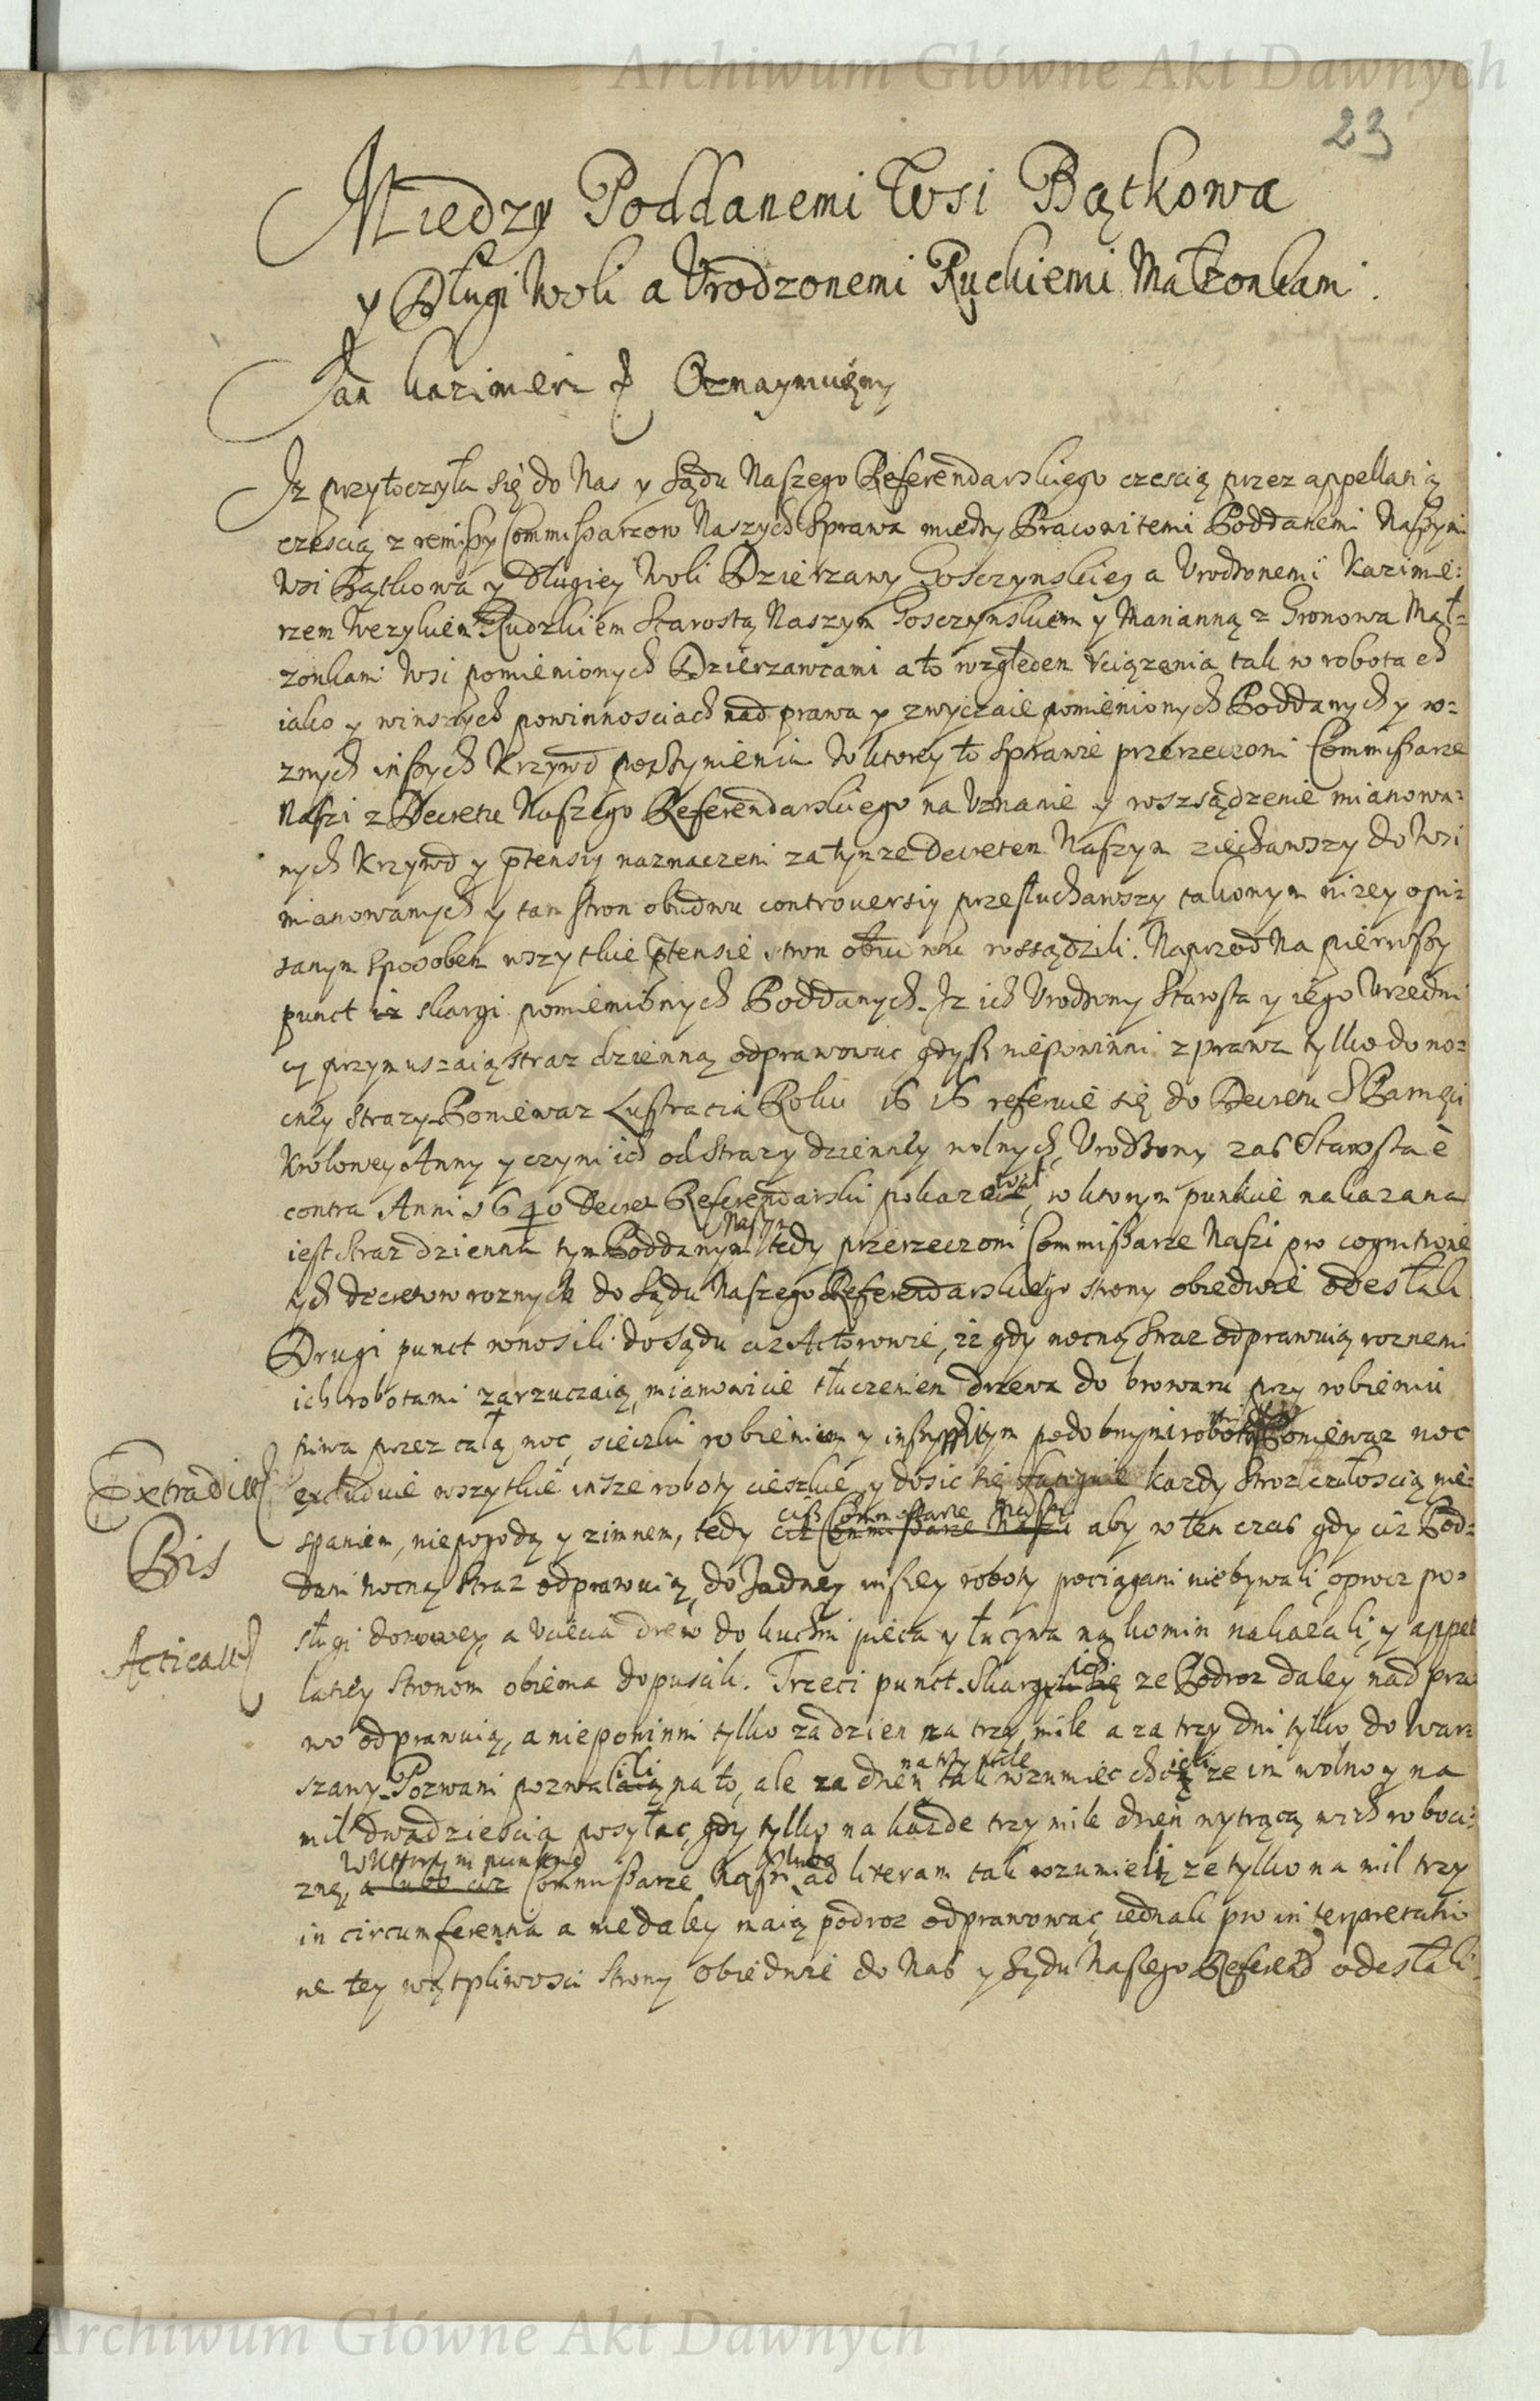 Archiwum Główne Akt Dawnych
23
Miedzy Poddanemi Wsi Bątkowa
y Długi Woli a Vrodzonemi Ruckiemi Małżonkami.
Jan Kazimierz Oznaymuięmy
Jz przytoczyła się do Nas y Sądu Naszego Referendarskiego czescią przez appellatią
czescią z remissy Commissarzow Naszych Sprawa miedzy Pracowitemi Poddanemi Naszymi
Wsi Bątkowa y Długiey Woli Dzierzawy Gosczynskiey a Vrodzonemi Kazimie:
rzem Wezykiem Rudzkiem Starostą Naszym Gosczynskiem y Marianną z Gronowa Mał=
zonkami Wsi pomienionych Dzierzawcami a to względem vciązenia tak w robotach
iako y winszych powinnosciach nad prawa y zwyczaie pomienionych Poddanych y ro=
znych inszych Krzywd poczynienia w ktorey to Sprawie przerzeczoni Commissarze
Naszi z Decretu Naszego Referendarskiego na Vznanie y rosządzenie mianowa:
nych Krzywd y ptensiy naznaczeni za tymze Decretem Naszym ziechawszy do Wsi
mianowanych y tam stron obudwu controuersiy przesłuchawszy takowym nizey opi=
sanym sposobem wszytkie ptensie stron obudwu rossądzili. Naprzod Na pierwszy
punct iz skargi pomienionych Poddanych. Jz ich Vrodzony Starosta y iego Vrzedni
cy przymuszaią straz dzienną odprawowac gdysz niepowinni z prawa tylko do no=
cney strazy Poniewaz Lustracia Roku 1616 referuie się do Decretu S Pamęci
Krolowey Anny y czyni ich od strazy dzienney wolnych, Vrodzony zas Starosta e
contra Anni 1640 Decret Referendarski pokazował, w ktorym punkcie nakazana
iest straz dzienna tym Poddanym Naszym tedy przerzeczoni Commissarze Naszi pro cognitione
tych decretow roznych do Sądu Naszego Referendarskiego strony obiedwie odesłali
Drugi punct wnosili do sądu ciz Actorowie, iz gdy nocną straz odprawuią roznemi
ich robotami zarzuczaią, mianowicie tłuczeniem drzewa do browaru przy robieniu
piwa przez całą noc, sieczki robieniem y inszym podobnymi robotami Poniewaz noc
excluduie wszytkie insze roboty cieszkie, y dosic się fatiguie kazdy Stroz czułoscią nie=
spaniem, niepogodą y zimnem, tedy ciz Commissarze Naszi ciss Commissarze Naszi aby w ten czas gdy ciz Pod=
dani nocną straz odprawuią, do zadney inszey roboty pociągani niebywali, oprocz po=
sługi domowey, a vciecia drew do kuchni pieca y łuczywa na komin nakazali, y appel
latiey stronom obiema dopuscili. Trzeci punct skargi ich się ze Podroz daley nad pra
wo odprawuią, a niepowinni tylko za dzien na trzy mile a za trzy dni tylko do War=
szawy. Pozwani pozwalaią ili na to, ale za dzien na trzy mile tak rozumiec chcieli ze im wolno y na
mil dwadziescia posyłac, gdy tylko na kazde trzy mile dzien wytrącą w ich roboci=
znę, a lubo ciz W ktorym punkcie Commissarze Naszi lubo ad literam tak rozumieli ze tylko na mil trzy
in circumferentia a niedaley maią podroz odprawowac, iednak pro interpretatio
ne tey wątpliwosci strony obiedwie do Nas y Sądu Naszego Referend odesłali.
Extradit
Bis
Acticat
Archiwum Główne Akt Dawnych